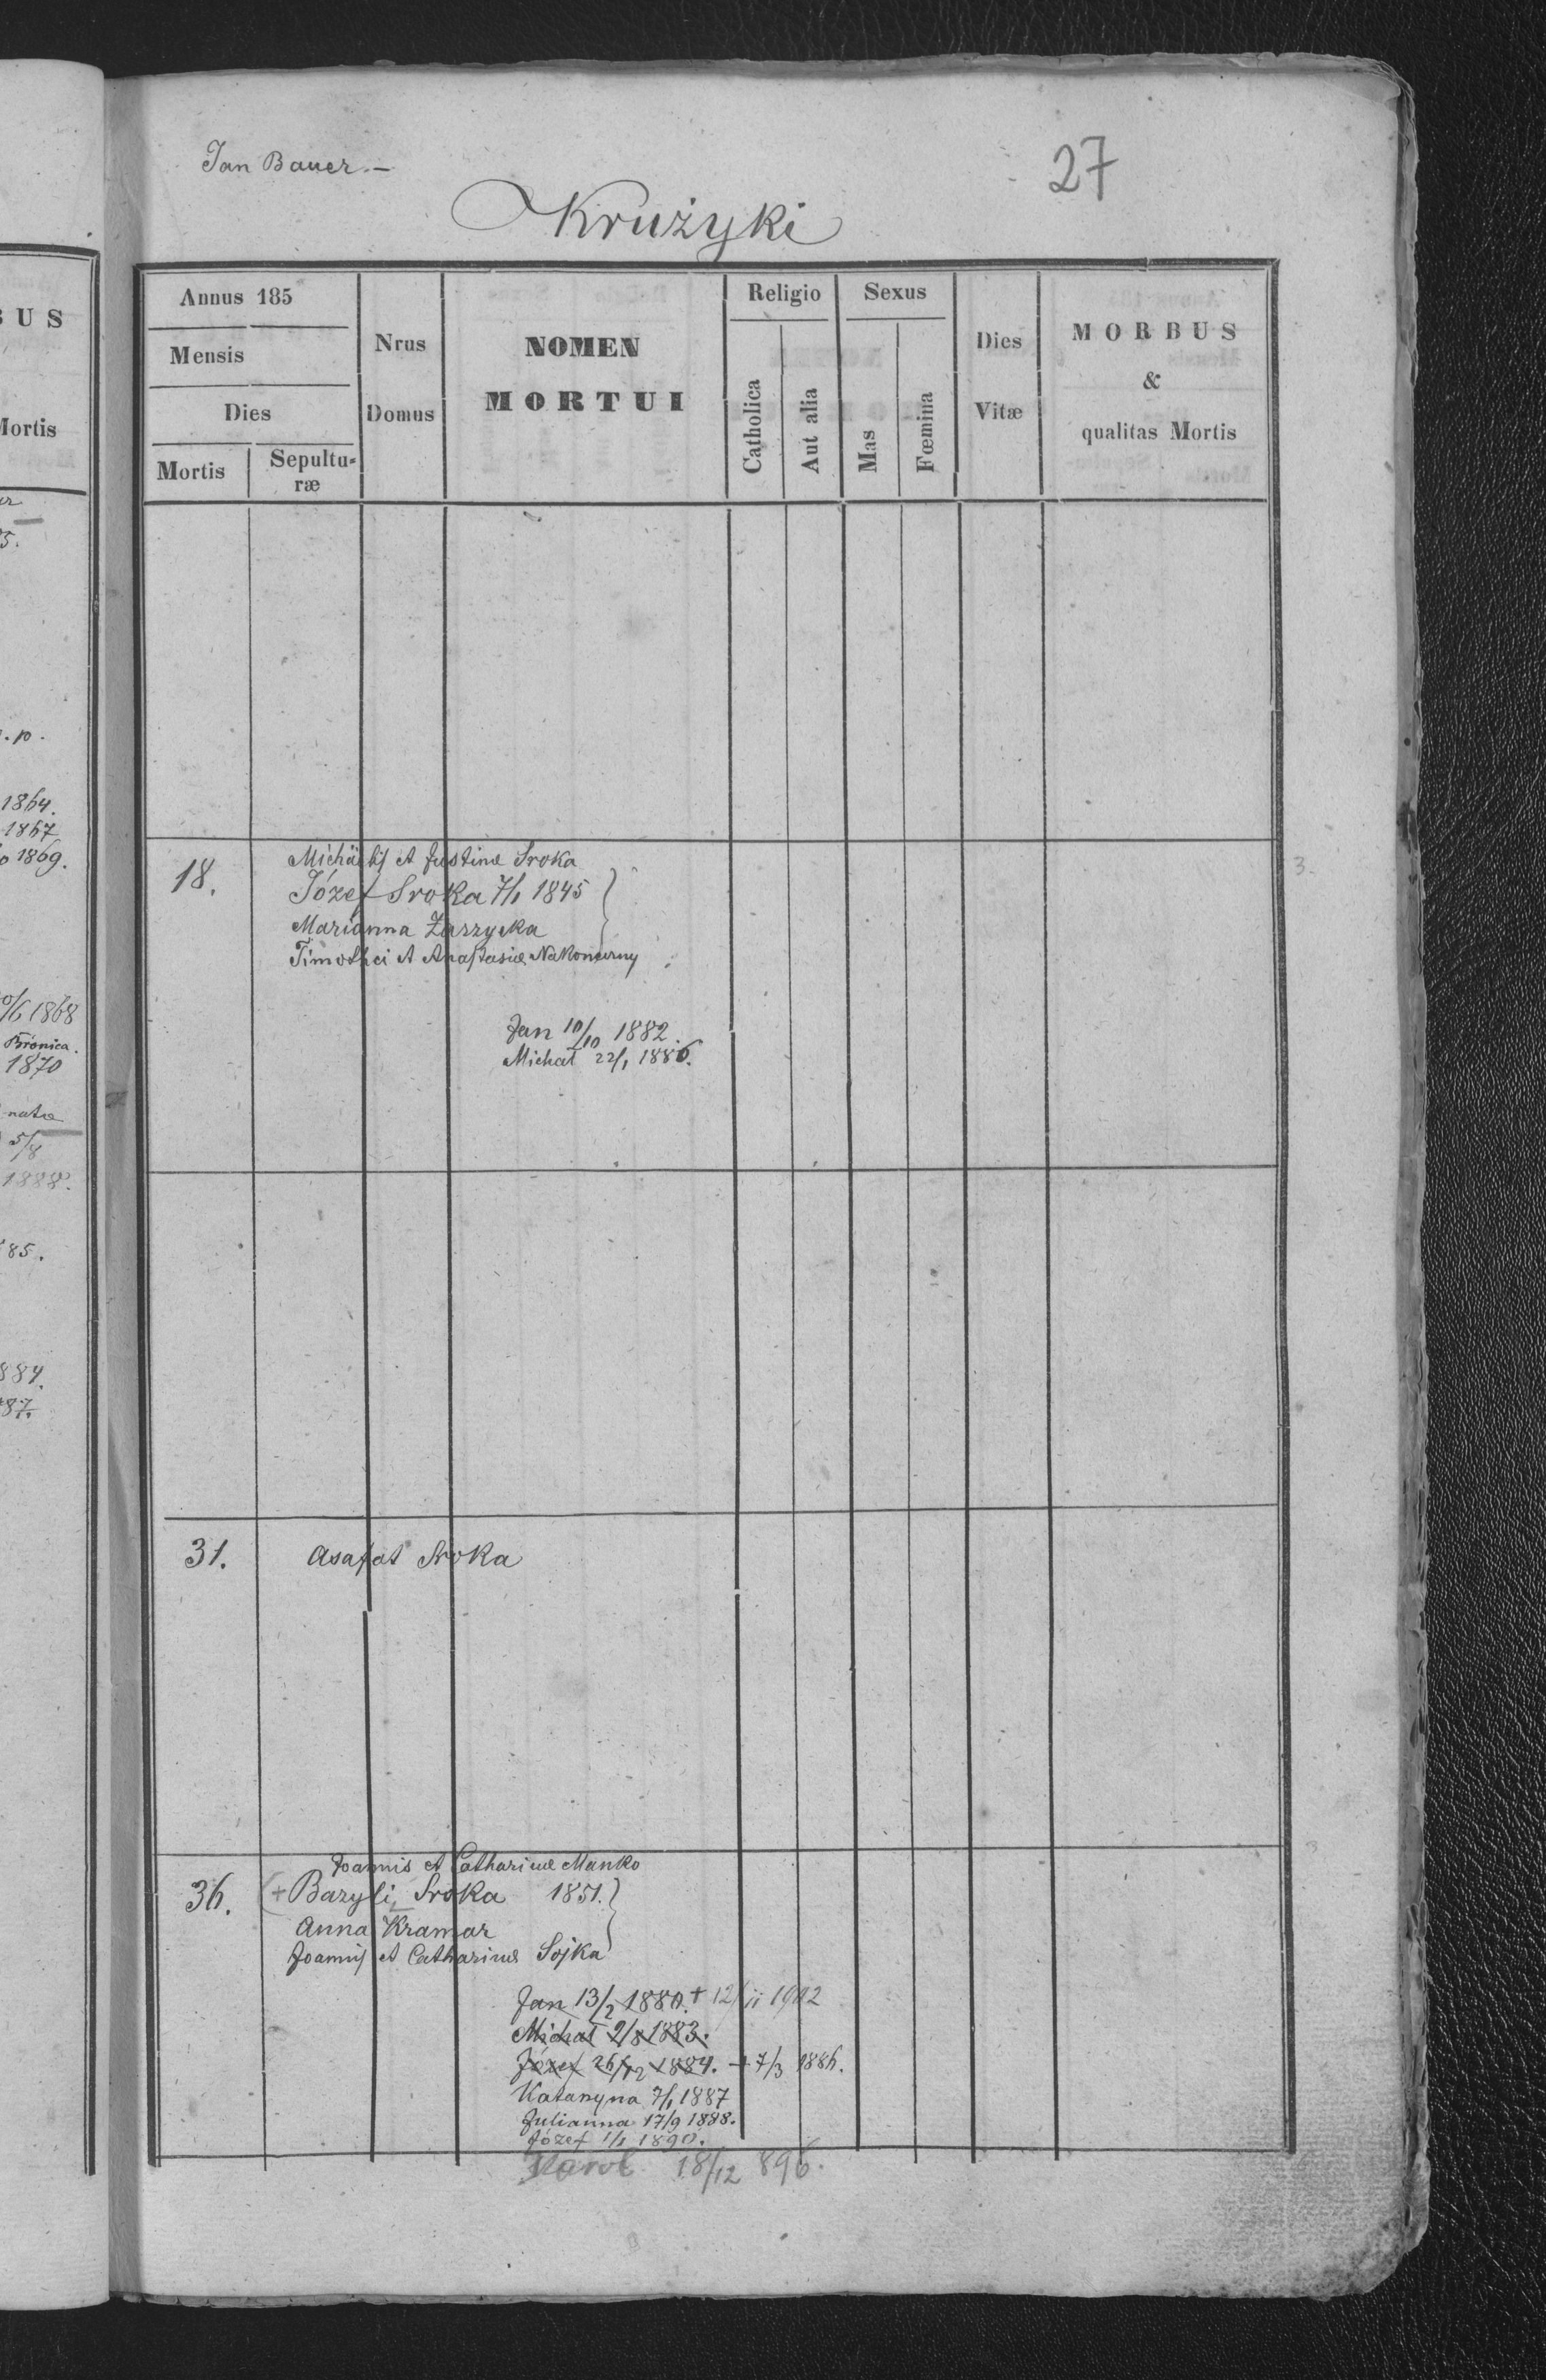 US
Mortis
5.
1864.
1867
1869.
/6 1868
Bronica.
1870
natæ
5/8
1888.
85.
884.
87.
Jan Bauer. –
27
Krużyki
Annus 185
Mensis
Dies
Mortis
Sepultu-
ræ
Nrus
Domus
NOMEN
MORTUI
Religio
Catholica
Aut alia
Sexus
Mas
Fœmina
Dies
Vitæ
MORBUS
&
qualitas Mortis
18.
Michäelis et Justinæ Sroka
Józef Sroka 7/1 1845
Marianna Zarzycka
Timothei et Anastasiæ Nakoneczny
Jan 10/10 1882.
Michał 22/1 1886.
3.
31.
Asafat Sroka
36.
Joannis et Catharinæ Manko
(+ Bazyli Sroka 1851.
Anna Kramar
Joannis et Catharinæ Sojka
Jan 13/2 1880. + 12/11 1902
Michał 2/8 1883.
Józef 26/12 1884. + 7/3 1886.
Katarzyna 7/1 1887
Julianna 17/9 1888.
Józef 1/1 1890.
Karol 18/12 896.